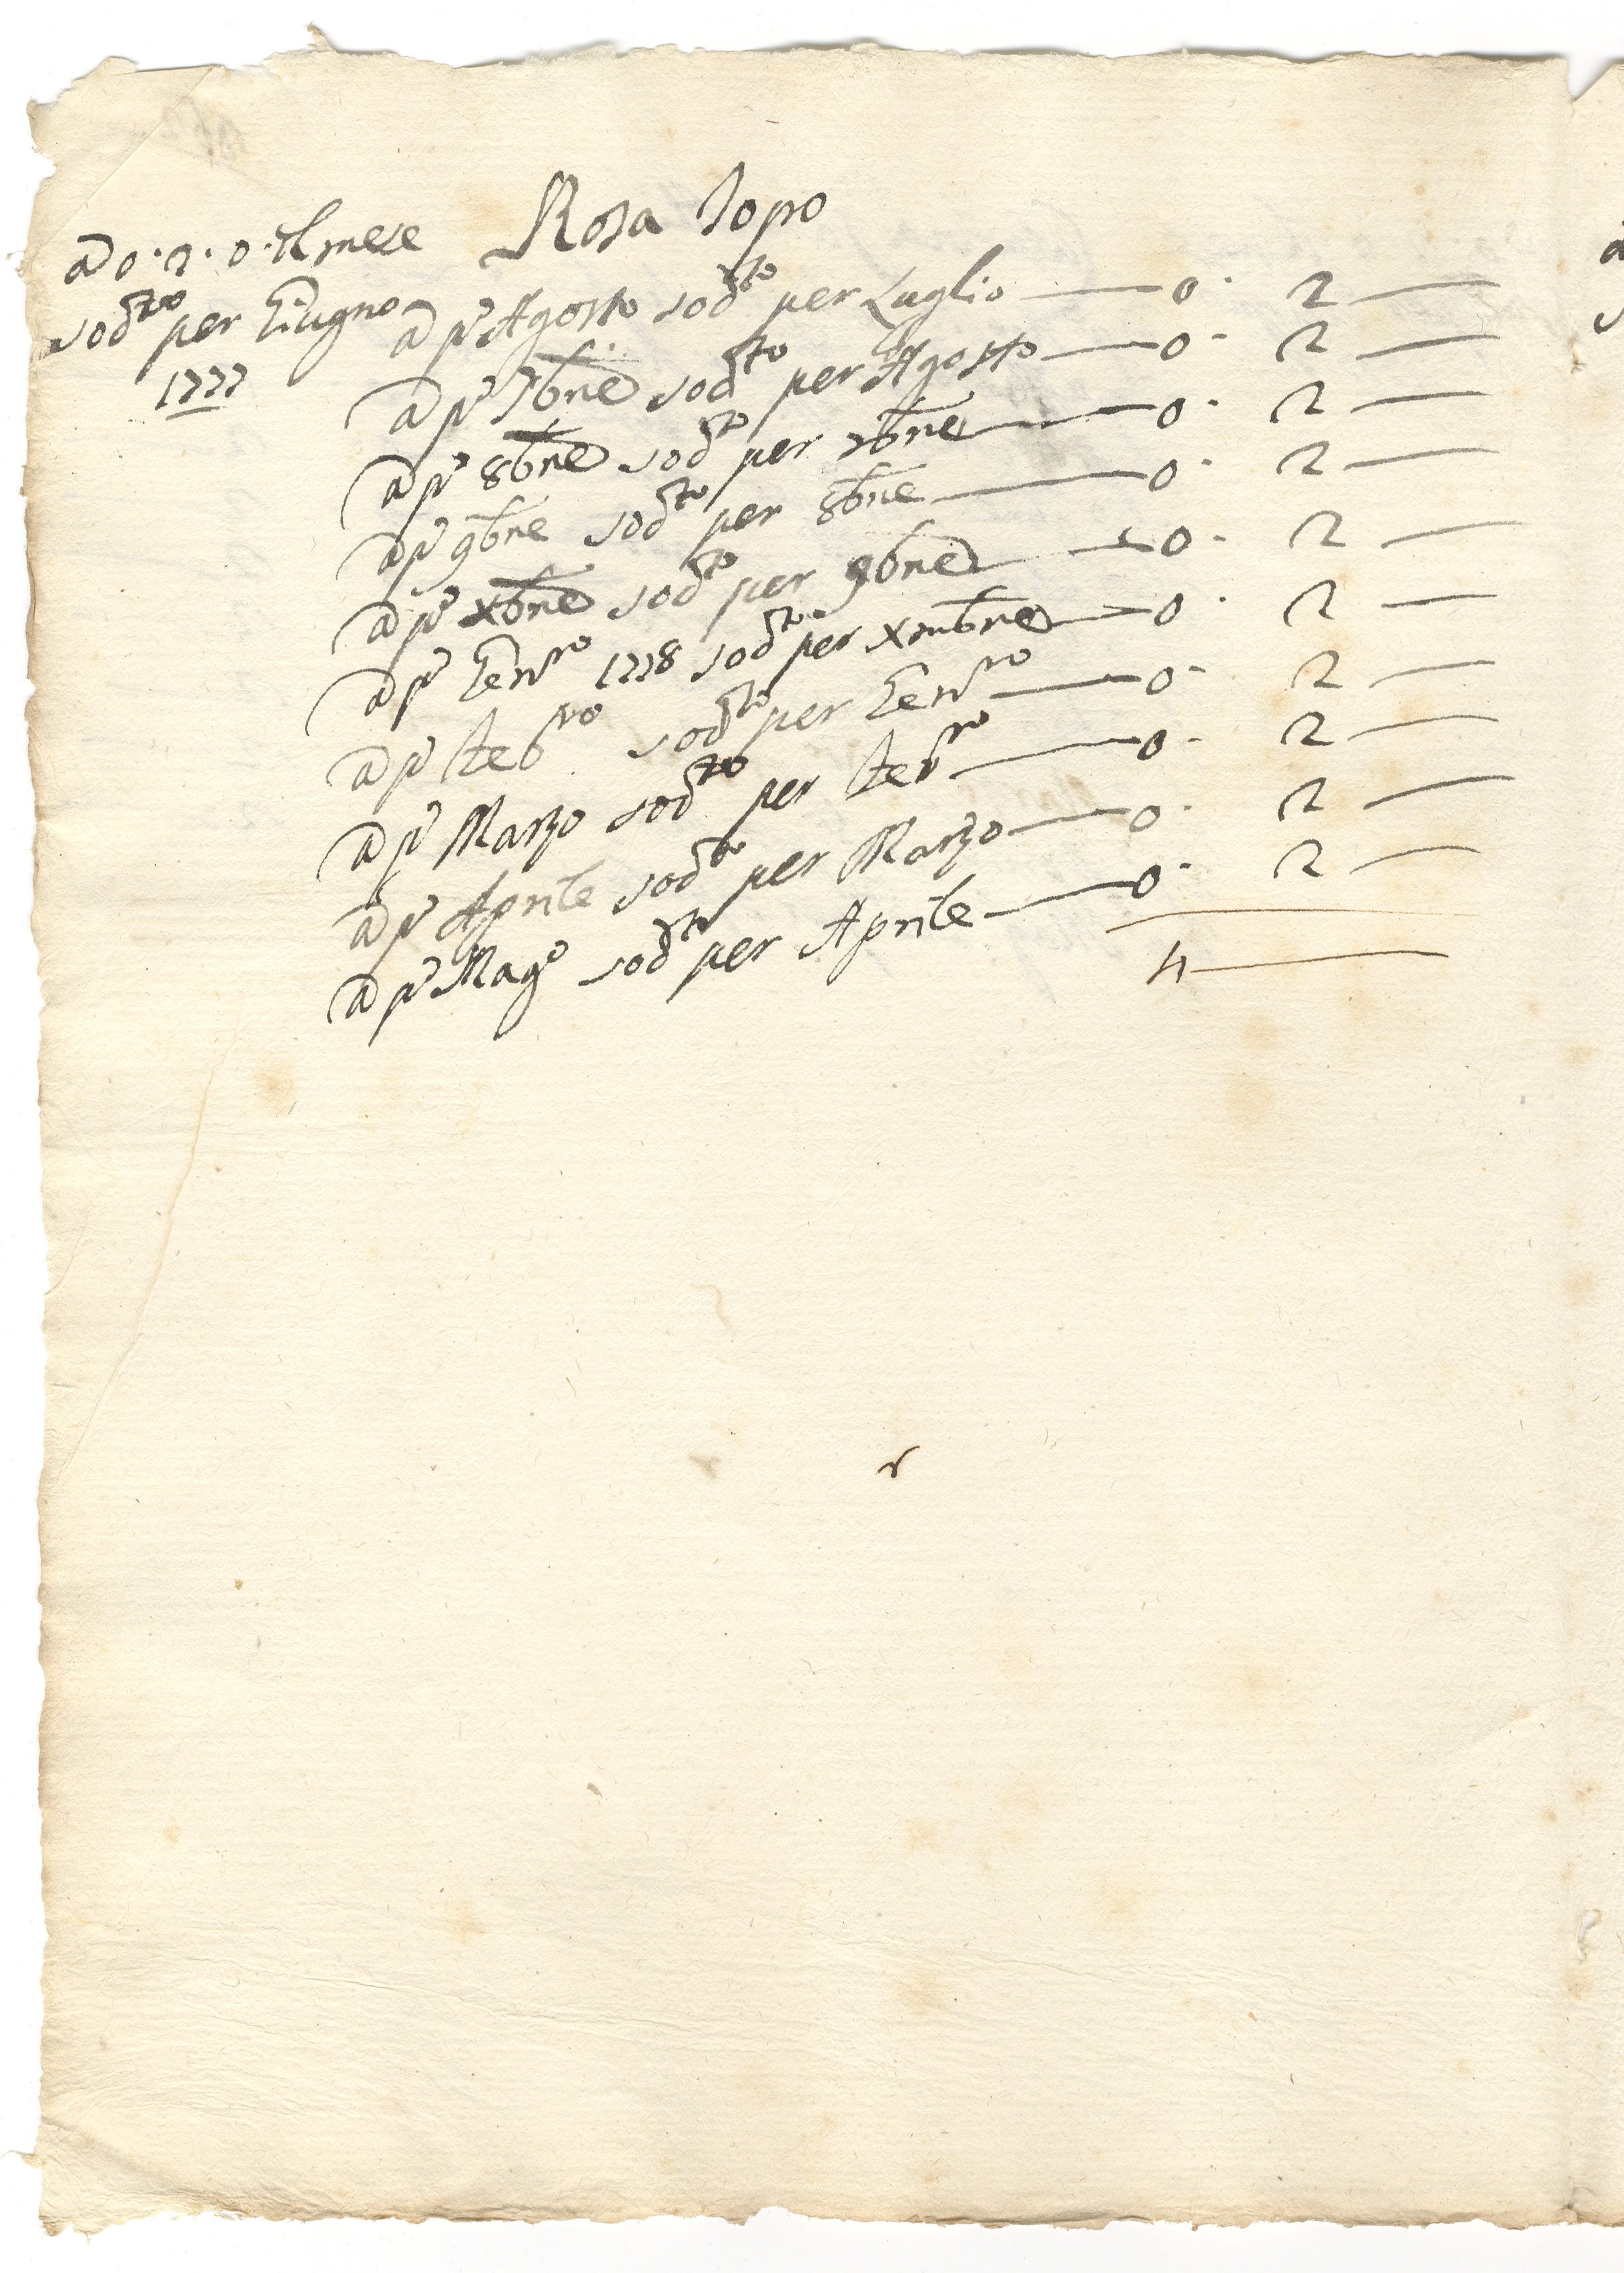 Rosa Topo
a 0.2.0. il mese
sod.tto per Giugno
1777
a p.º Agosto sod.tto per Luglio — 0. 2 —
a p.º 7bre sod.to per Agosto — 0. 2 —
a p.º 8bre sod.to per 7bre — 0. 2 —
a p.º 9bre sod.to per 8bre — 0. 2 —
a p.º Xbre sod.to per 9bre — 0. 2 —
a p.º Genn.ro 1778 sod.to per Xmbre — 0. 2 —
a p.º Feb.ro sod.to per Genn.ro — 0. 2 —
a p.º Marzo sod.to per Feb.ro — 0. 2 —
a p.º Aprile sod.to per Marzo — 0. 2 —
a p.º Mag.o sod.tto per Aprile — 0. 2 —
4 —